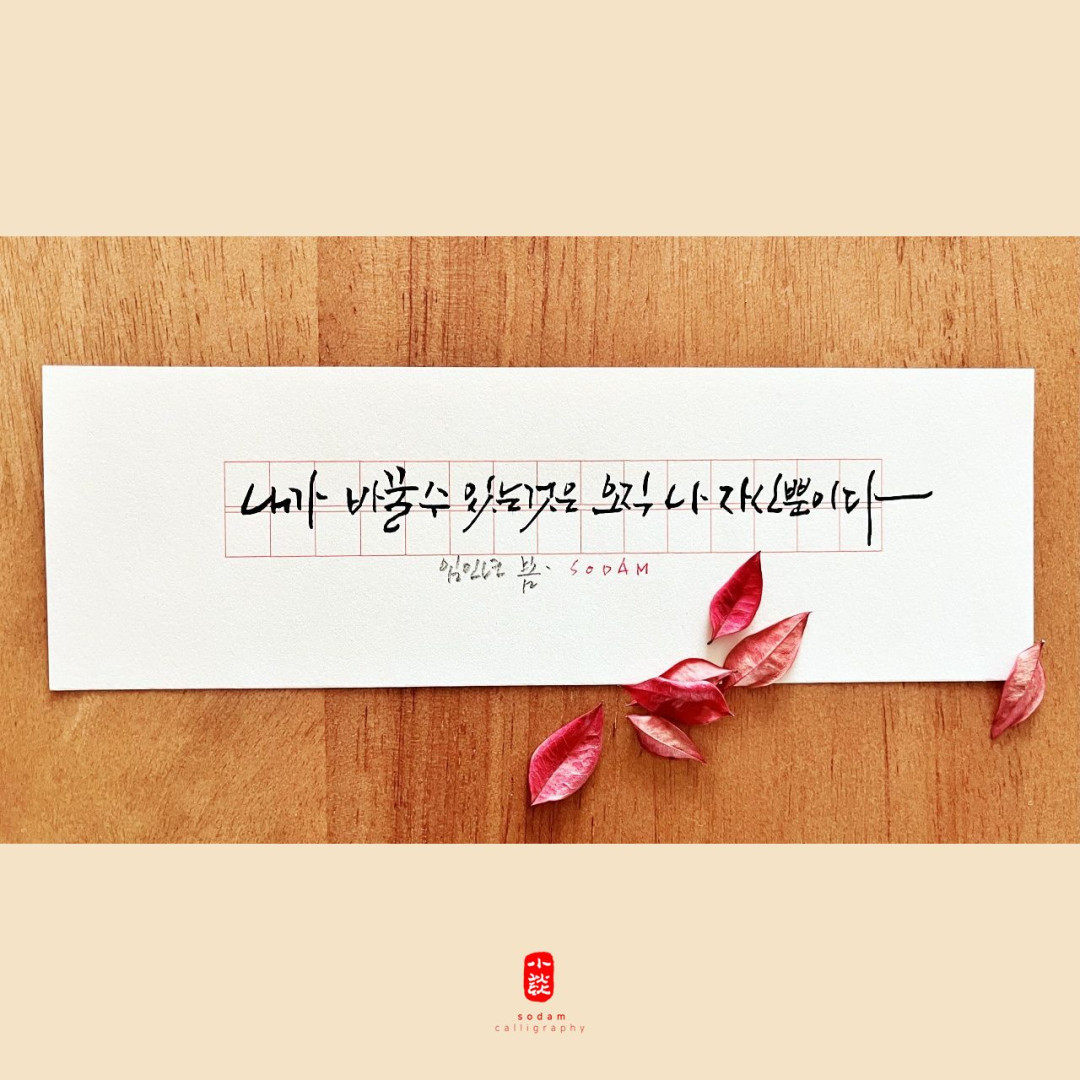 내가 바꿀수 있는것은 오직 나 자신뿐이다
임인년 봄. SODAM
sodam
calligraphy